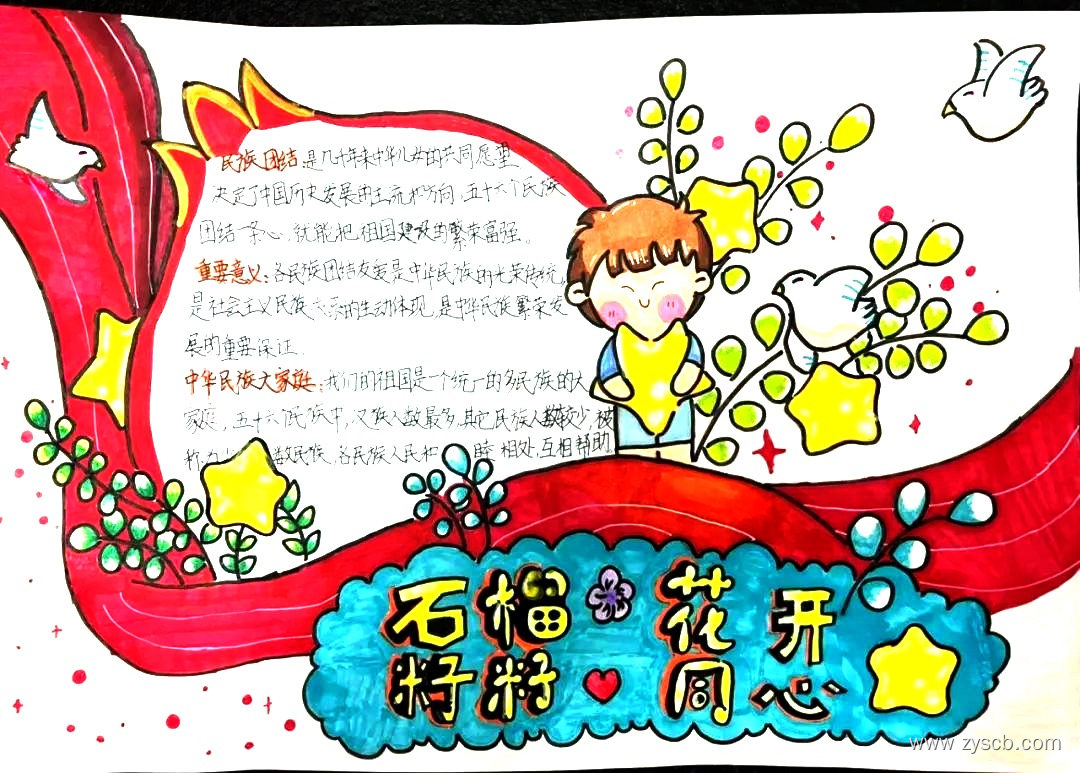 民族团结是几十年来中华儿女的共同愿望
决定了中国历史发展的主流和方向,五十六个民族
团结一条心,就能把祖国建设的繁荣富强。
重要意义:各民族团结友爱是中华民族的光荣传统,
是社会主义民族关系的生动体现,是中华民族繁荣发
展的重要保证.
中华民族大家庭:我们的祖国是一个统一的多民族的大
家庭,五十六个民族中,汉族人数最多,其它民族人数较少,被
称为少数民族,各民族人民和睦相处,互相帮助
石榴花开
籽籽同心
www.zyscb.com